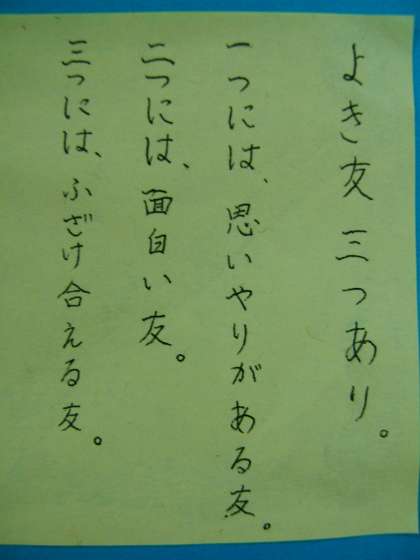 よき友三つあり。
一つには、思いやりがある友。
二つには、面白い友。
三つには、ふざけ合える友。